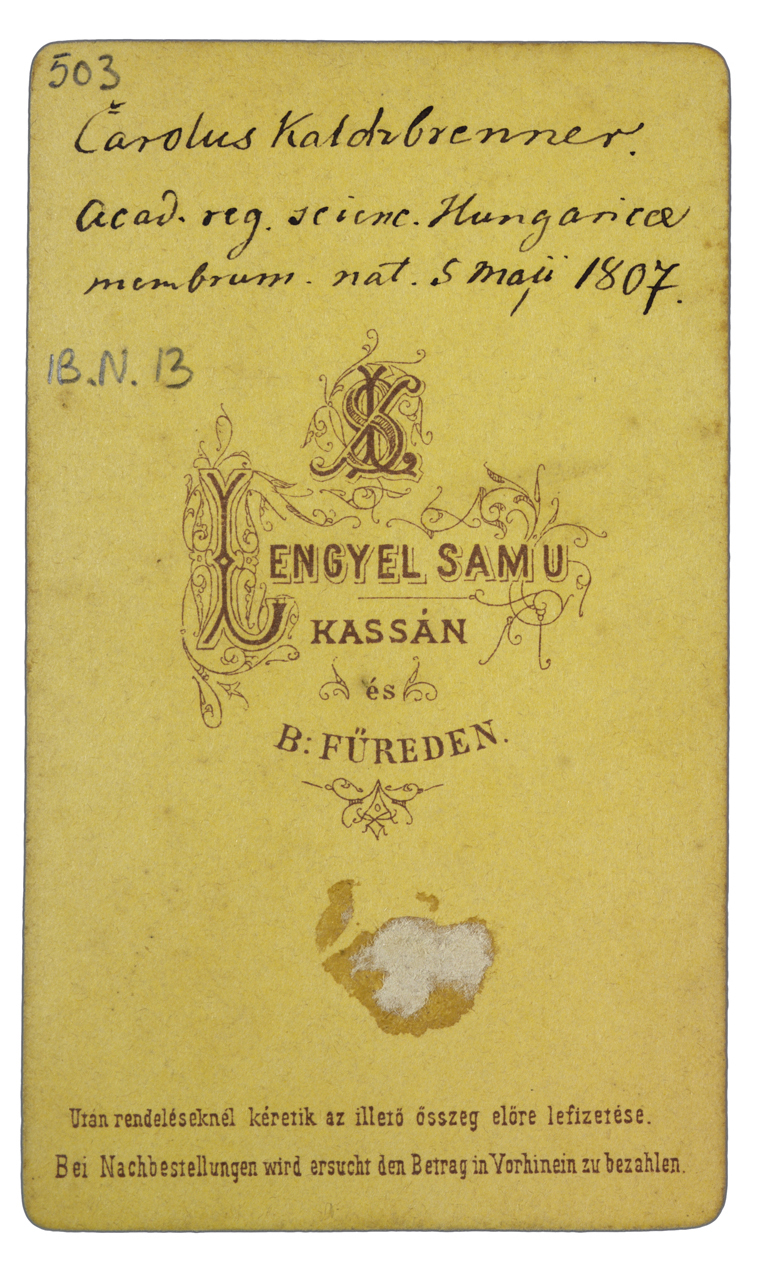 503
Carolus Kalchbrenner.
Acad. reg. scienc. Hungaricæ
membrum. nat. 5 Maji 1807.
1B.N. 13
LS
LENGYEL SAMU
KASSÁN
és
B: FŰREDEN.
Utánrendeléseknél kéretik az illető összeg előre lefizetése.
Bei Nachbestellungen wird ersucht den Betrag in Vorhinein zu bezahlen.